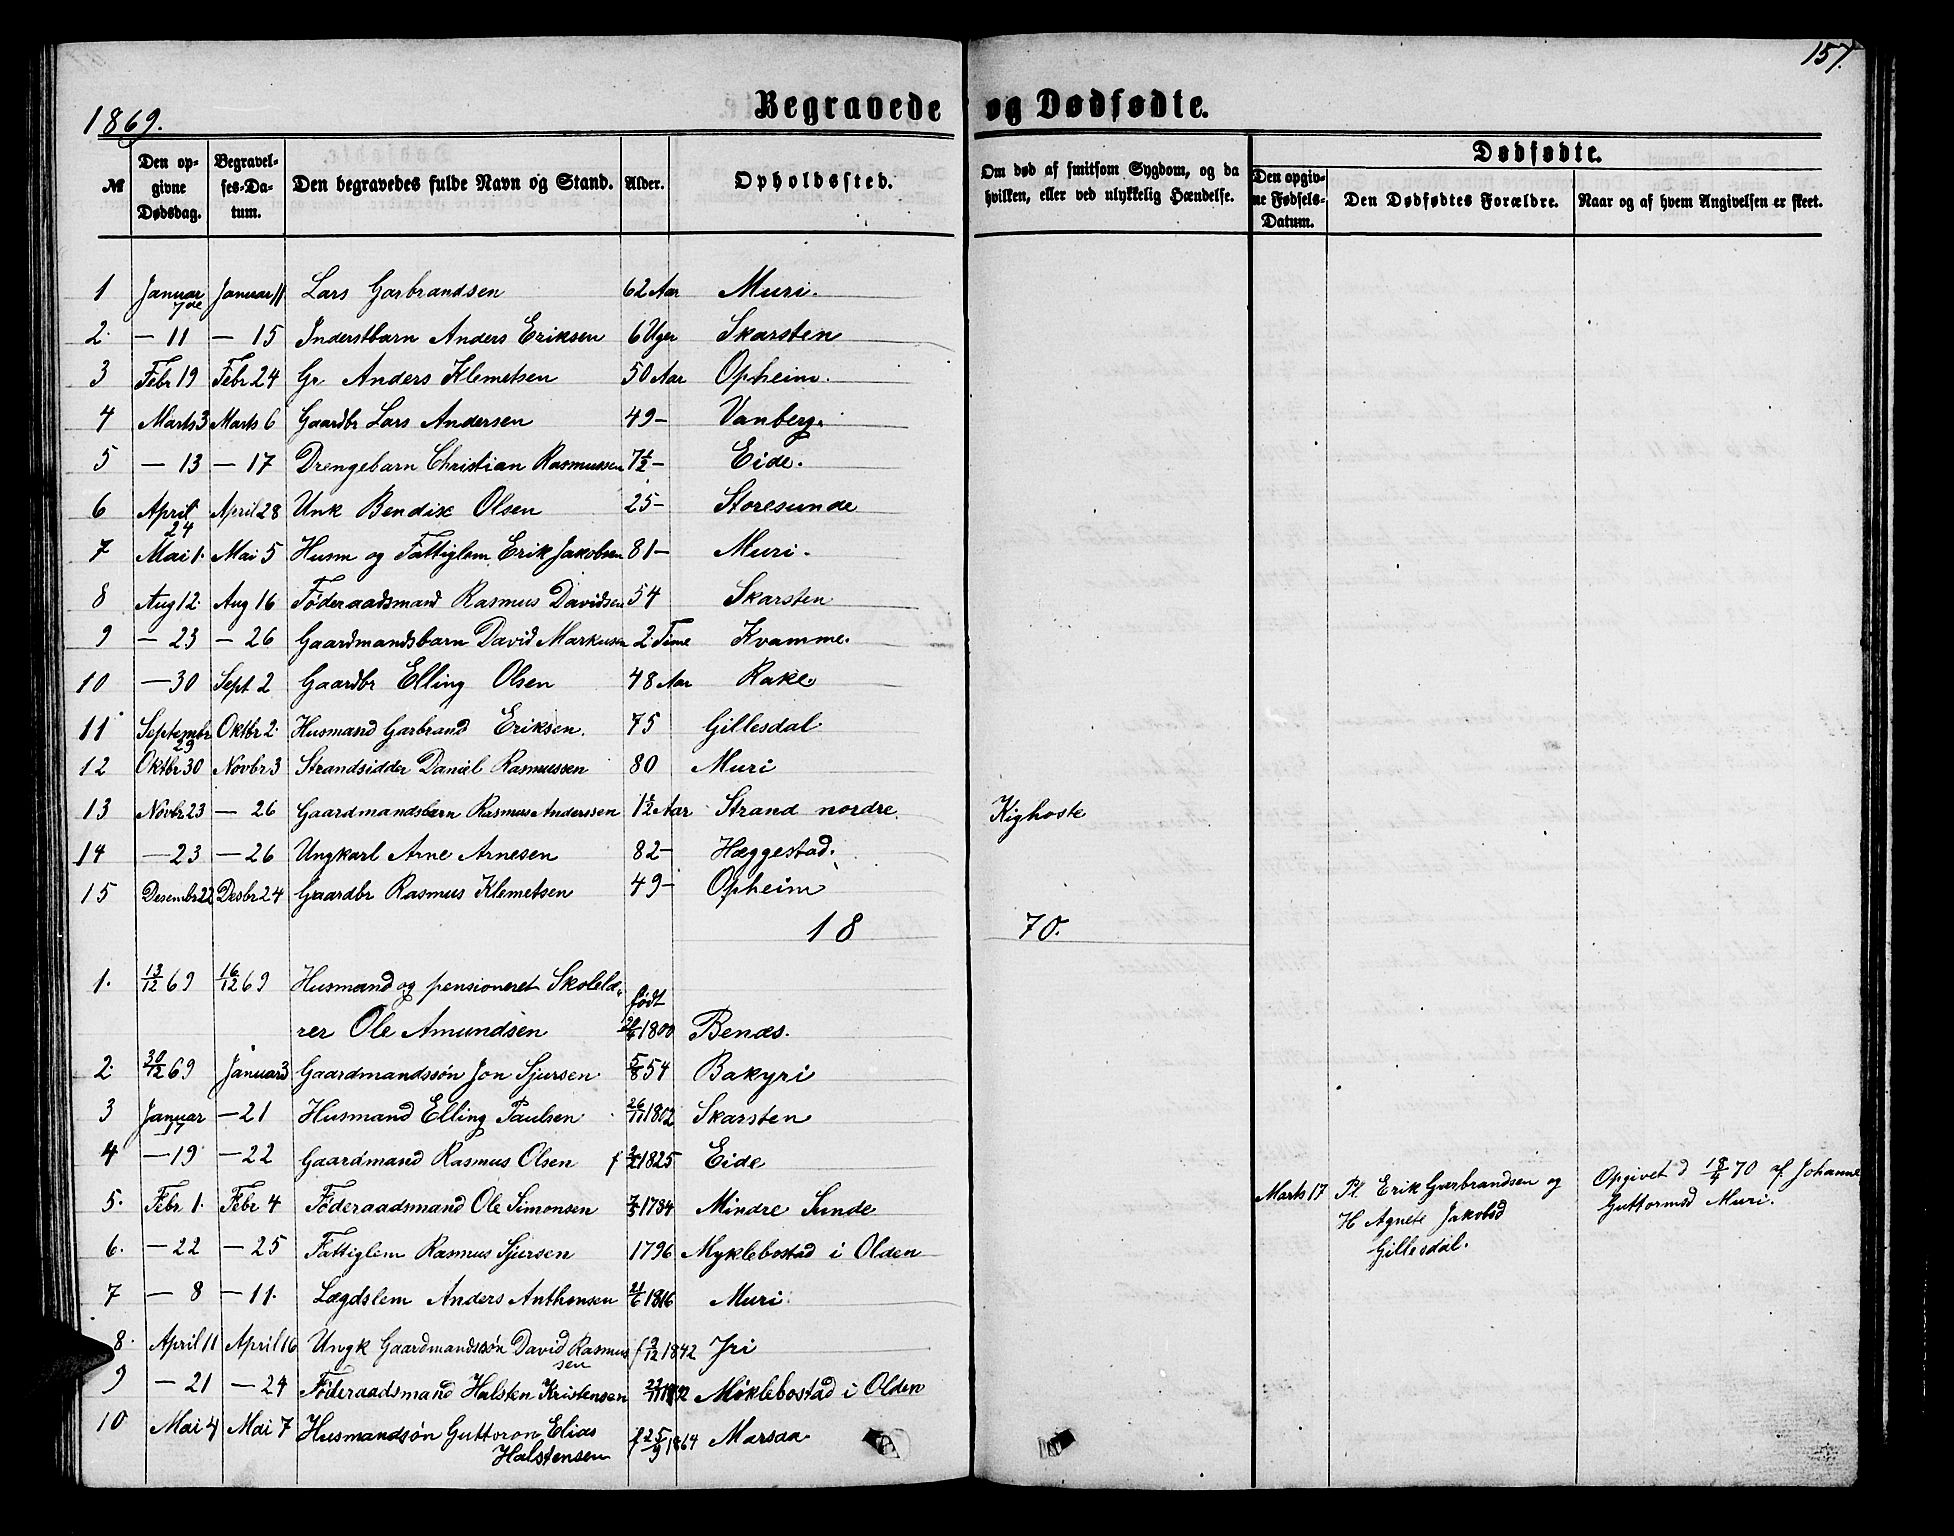 157.
1869.
Begravede og Dødfødte.
№ Den opgivne Dødsdag. Begravelses-Datum. Den begravedes fulde Navn og Stand. Alder. Opholdssted. Om død af smitsom Sygdom, og da hvilken, eller ved ulykkelig Hændelse. Dødfødte.
Den opgivne Fødsels-Datum. Den Dødfødtes Forældre. Naar og af hvem Angivelsen er skeet.
1 Januar 7de Januar 11 Lars Garbrandsen 62 Aar Muri.
2. — 11 — 15 Inderstbarn Anders Eriksen 6 Uger Skarsten
3 Febr 19 Febr 24 Gr Anders Klemetsen 50 Aar Opheim.
4 Marts 3 Marts 6 Gaardbr Lars Andersen 49 — Vanberg.
5 — 13 — 17 Drengebarn Christian Rasmussen 7½ — Eide.
6 April 24 April 28 Unk Bendix Olsen 25 — Storesunde
7 Mai 1. Mai 5 Husm og Fattiglem Erik Jakobsen 81 — Muri.
8 Aug 12. Aug 16 Föderaadsmand Rasmus Davidsen 54 Skarsten
9 — 23 — 26 Gaardmandsbarn David Markusen 2 Time Kvamme.
10 — 30 Sept 2 Gaardbr Elling Olsen 48 Aar Rake.
11 Septembr 29 Oktbr 2. Husmand Garbrand Eriksen. 75 Gillesdal
12 Oktbr 30 Novbr 3 Strandsidder Daniel Rasmussen 80 Muri
13 Novbr 23 — 26 Gaardmandsbarn Rasmus Anderssen 1½ Aar Strand nordre. Kighoste
14 — 23 — 26 Ungkarl Arne Arnesen 82 — Hæggestad.
15 Desembr 22 Desbr 24 Gaardbr Rasmus Klemetsen 49 — Opheim
18 70.
1. 13/12 69 16/12 69 Husmand og pensioneret Skolelæ-
rer Ole Amundsen født 1800 Benæs.
2. 30/12 69 Januar 3 Gaardmandssön Jon Sjursen 5/8 54 Bakyri
3 Januar 17 — 21 Husmand Elling Paulsen 26/11 1802 Skarsten
4 — 19 — 22 Gaardmand Rasmus Olsen f 1825 Eide
5. Febr 1. Febr 4 Føderaadsmand Ole Simonsen 1784 Mindre Sunde
Marts 17 Pl. Erik Garbrandsen og H Agnete Jakobsd Gillesdal. Opgivet d 18/4 70 af Johanne Guttormsd Muri.
6. — 22 — 25 Fattiglem Rasmus Sjursen 1796 Myklebostad i Olden
7 — 8 — 11. Lægdslem Anders Anthonsen 21/6 1816 Muri.
8. April 11 April 16 Ungk Gaardmandssön David Rasmussen f 9/12 1842 Jri
9 — 21 — 24 Föderaadsmand Halsten Kristensen Möklebostad i Olden
10 Mai 4 Mai 7 Husmandsön Guttorm Elias Halstensen f 25/9 1864 Marsaa